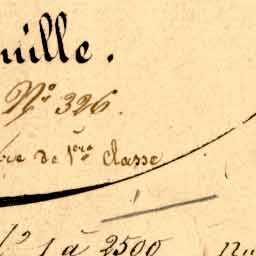 ille.
Nº 326.
re de 1ère classe
1 à 2500